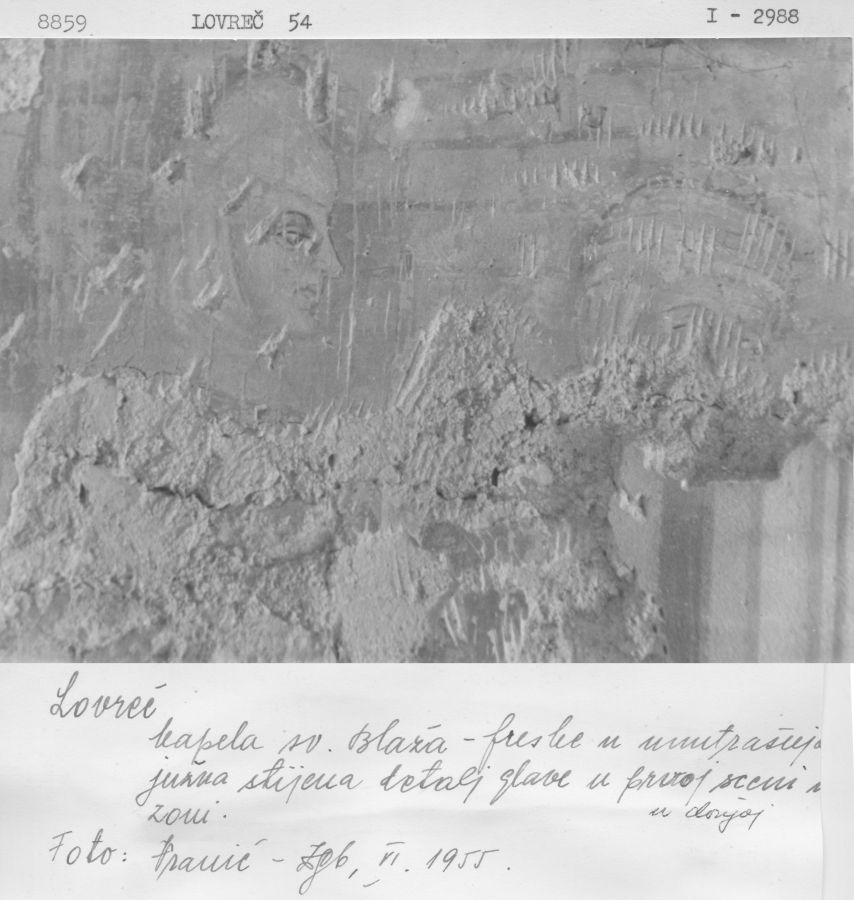 8859 LOVREČ 54 I - 2988
Lovreč
kapela sv. Blaža - freske u unutrašnjo
južna stijena detalj glave u prvoj sceni
u donjoj
zoni.
Foto: - Zgb, VI. 1955.